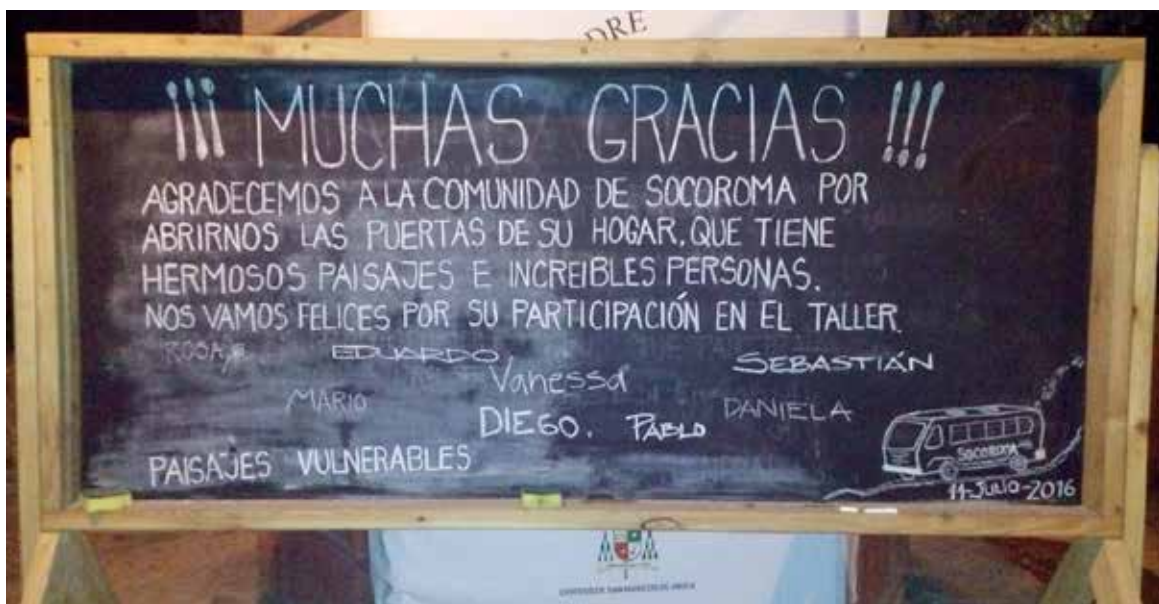 DRE
¡¡¡ MUCHAS GRACIAS !!!
AGRADECEMOS A LA COMUNIDAD DE SOCOROMA POR
ABRIRNOS LAS PUERTAS DE SU HOGAR, QUE TIENE
HERMOSOS PAISAJES E INCREIBLES PERSONAS.
NOS VAMOS FELICES POR SU PARTICIPACIÓN EN EL TALLER.
ROSA EDUARDO SEBASTIÁN
Vanessa
MARIO DANIELA
DIEGO. PABLO
PAISAJES VULNERABLES
SOCOROMA
11-JULIO-2016